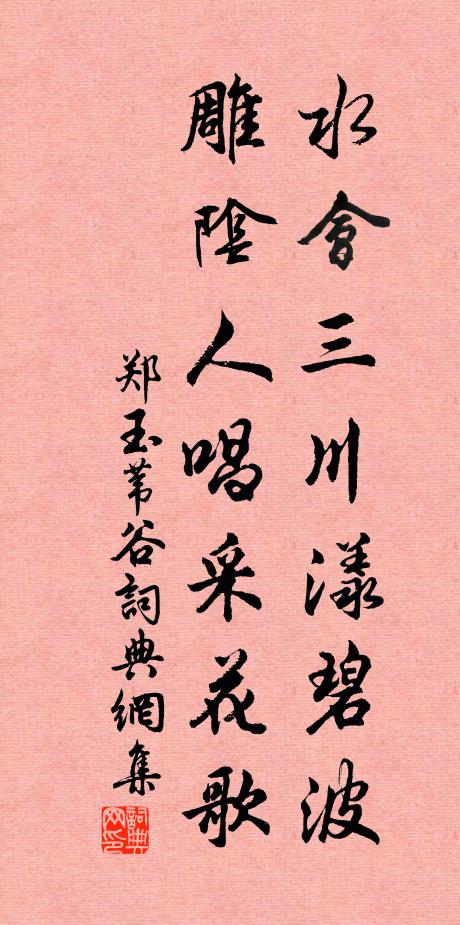 水會三川漾碧波
雕陰人唱采花歌
郑玉苇谷詞典網集
詞典网印